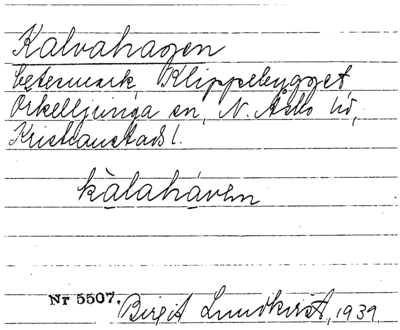 Kalvahagen
betesmark, Klippebygget
Örkelljunga sn, N. Åsbo hd,
Kristianstads l.
kàlaháven
Nr 5507.
Birgit Lundkvist, 1939.